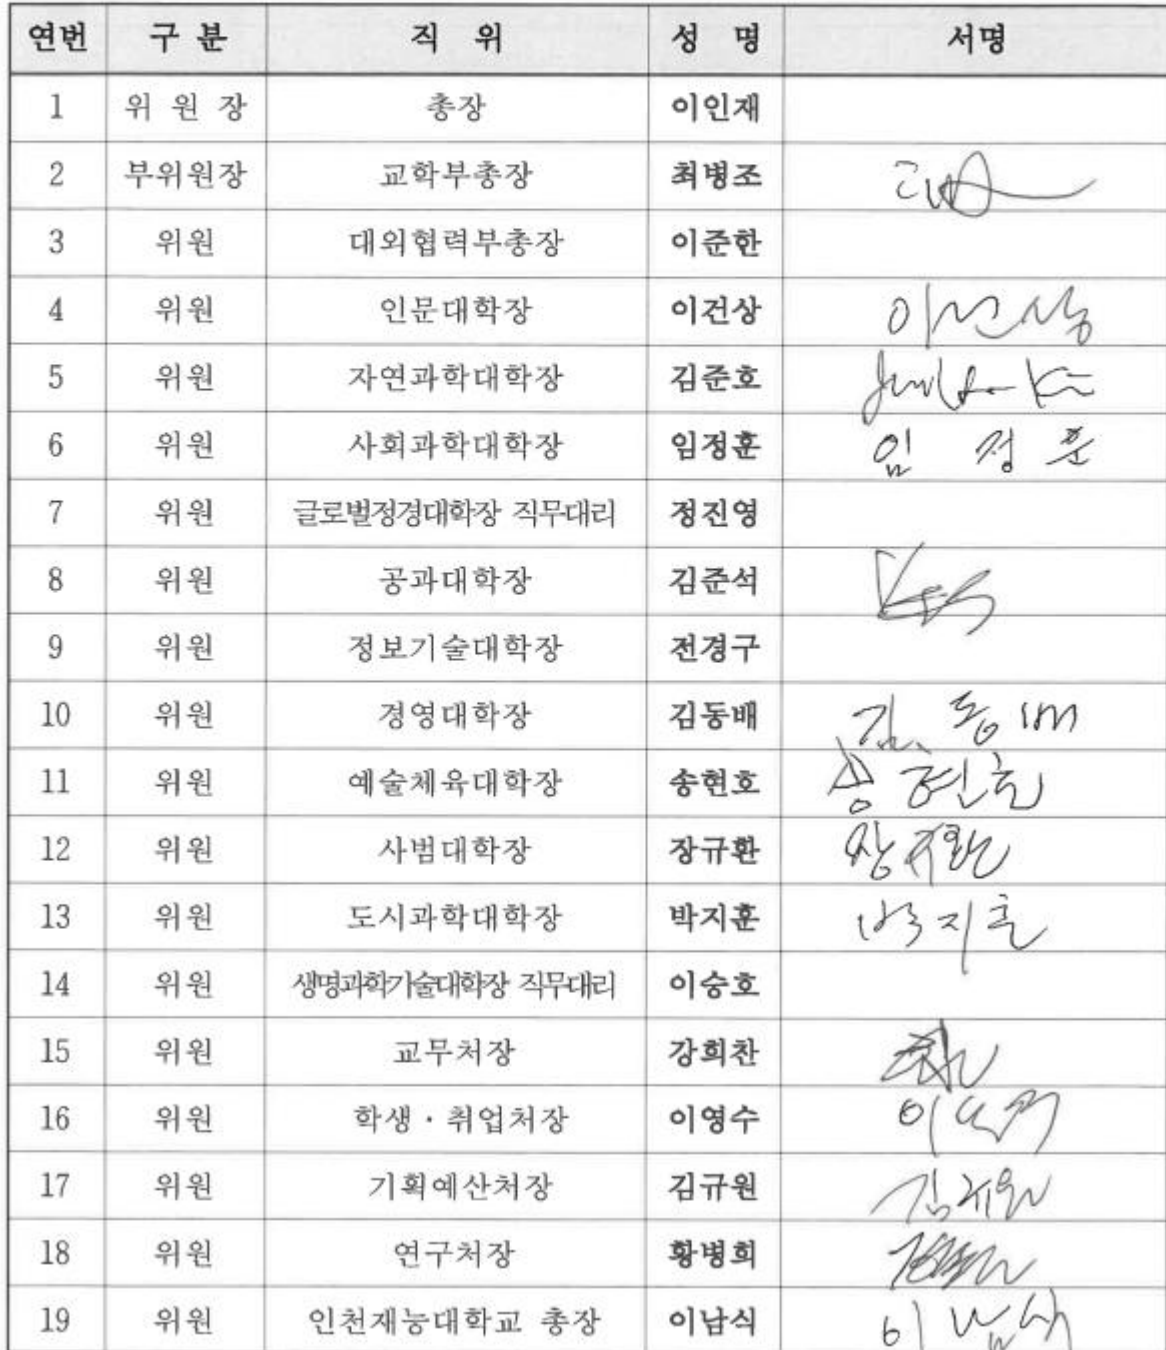 연번 구 분 직 위 성 명 서명
1 위 원 장 총장 이인재
2 부위원장 교학부총장 최병조
3 위원 대외협력부총장 이준한
4 위원 인문대학장 이건상 이건상
5 위원 자연과학대학장 김준호
6 위원 사회과학대학장 임정훈 임 정 훈
7 위원 글로벌정경대학장 직무대리 정진영
8 위원 공과대학장 김준석
9 위원 정보기술대학장 전경구
10 위원 경영대학장 김동배 김 동 배
11 위원 예술체육대학장 송현호 송현호
12 위원 사범대학장 장규환 장규환
13 위원 도시과학대학장 박지훈 박지훈
14 위원 생명과학기술대학장 직무대리 이승호
15 위원 교무처장 강희찬
16 위원 학생·취업처장 이영수
17 위원 기획예산처장 김규원 김규원
18 위원 연구처장 황병희
19 위원 인천재능대학교 총장 이남식 이남식